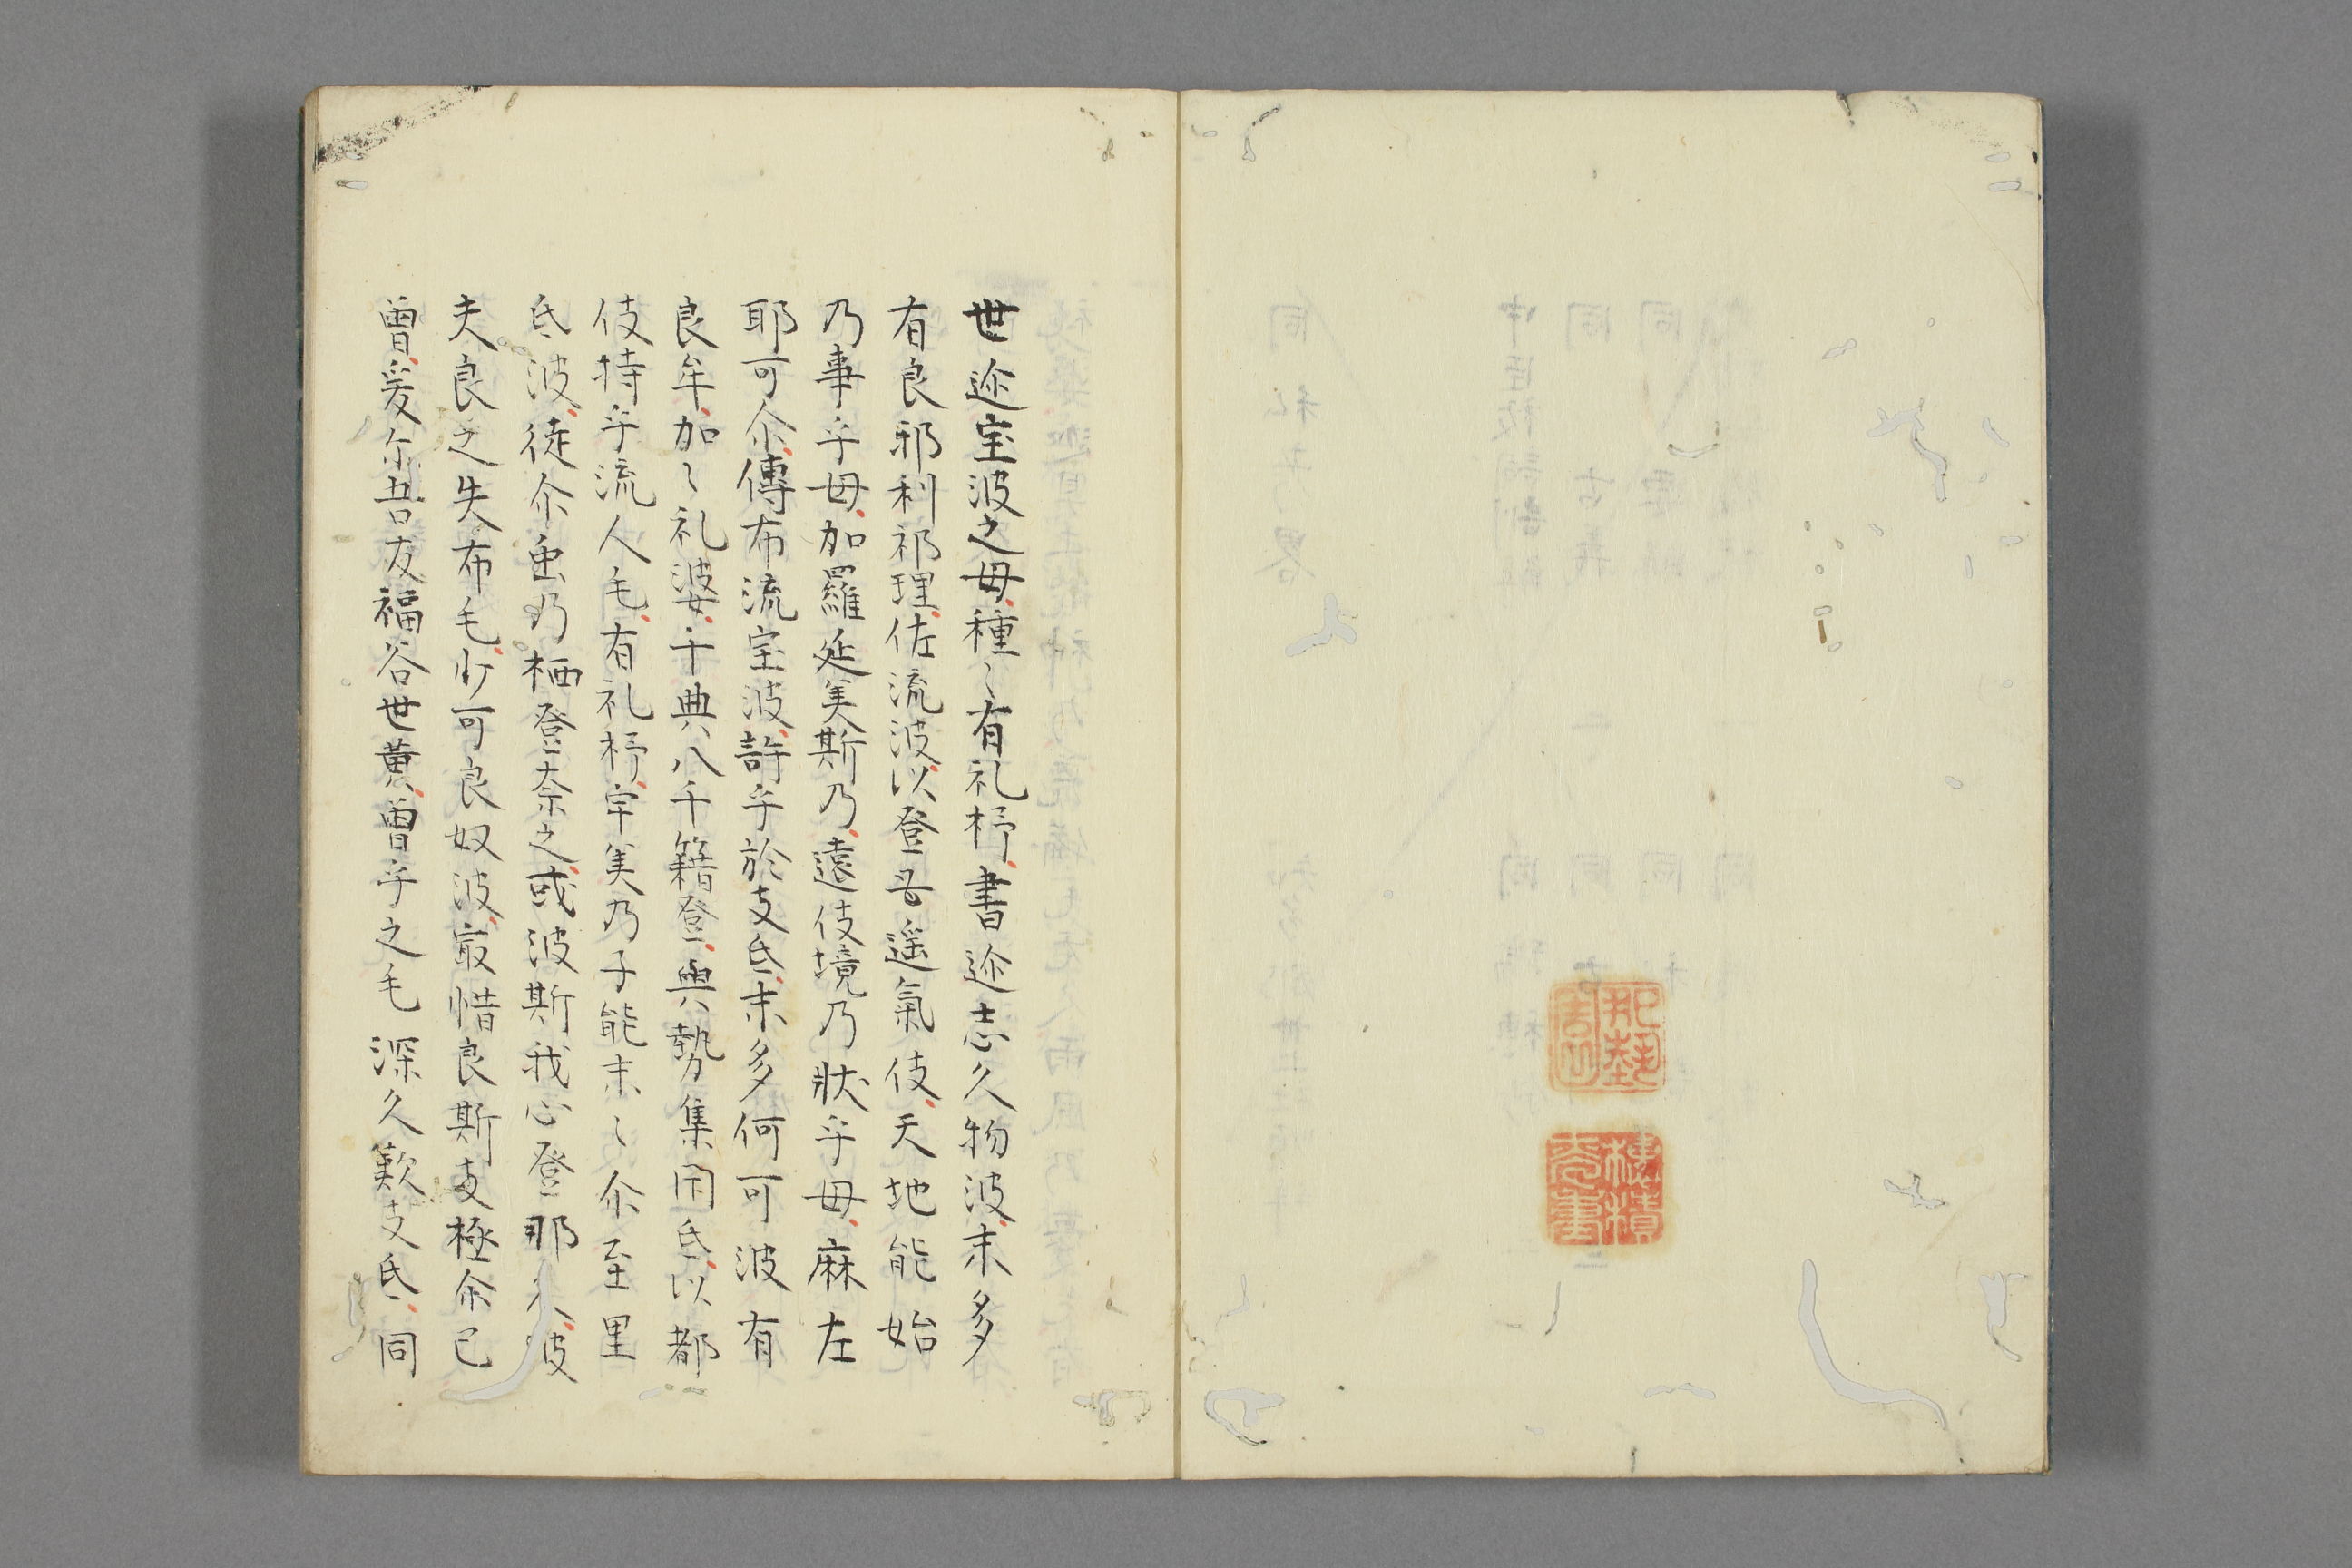 世迩宝波之毋種〻有礼杼書迩志久物波末多
有良邪利祁理佐流波以登吾遥氣伎天地能始
乃事乎毋加羅延美斯乃遠伎境乃狀乎毋麻左
耶可尒傳布流宝波許乎於支氐末多何可波有
良牟加〻礼婆千典八千籍登輿勢集閇氐以都
伎持乎流人毛有礼杼宇美乃子能末〻尒至里
氐波徒尒虫乃栖登奈之或波斯我心登那久波
夫良之失布毛少可良奴波最惜良斯支極尒己
曽爰尓吾友福谷世黄曽乎之毛深久歎支氐同